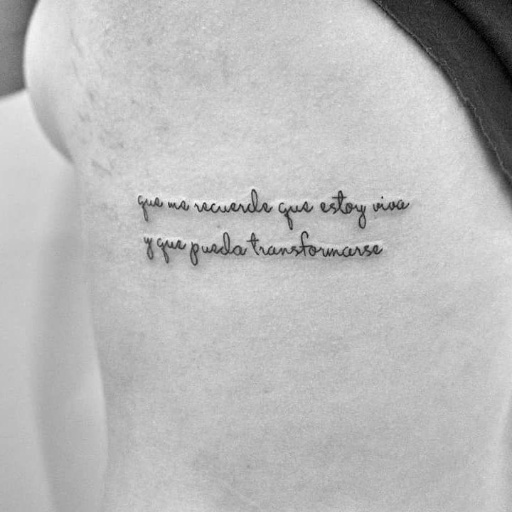 que me recuerde que estoy viva
y que pueda transformarse